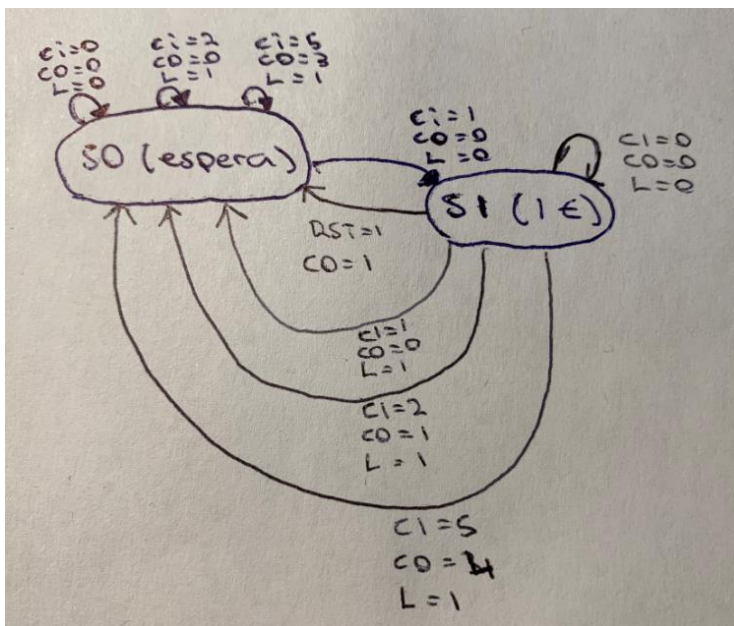 Ci=0
CO=0
L=0
Ci=2
CO=0
L=1
Ci=5
CO=3
L=1
S0 (espera)
Ci=1
CO=0
L=0
S1 (1€)
CI=0
CO=0
L=0
RST=1
CO=1
CI=1
CO=0
L=1
CI=2
CO=1
L=1
CI=5
CO=4
L=1